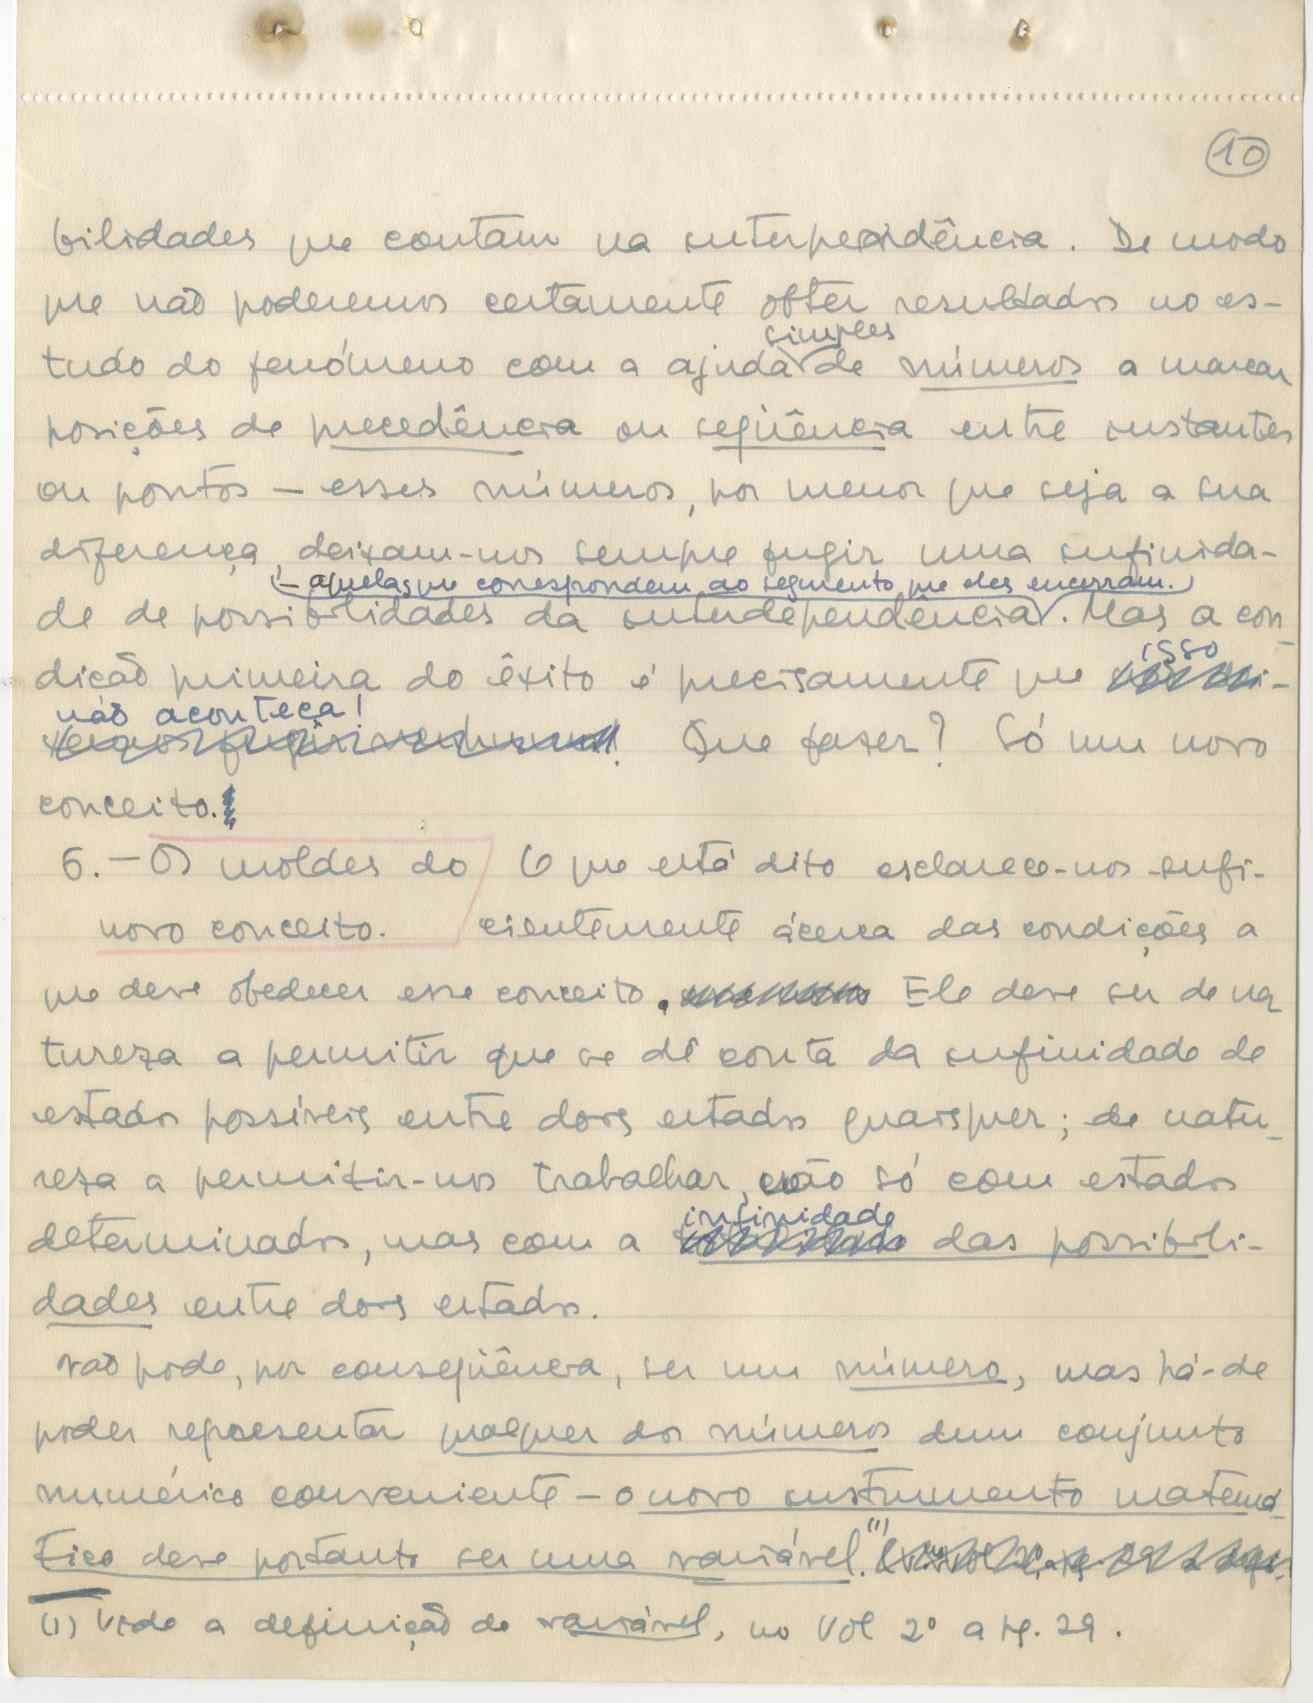 10
bilidades que contam na interpendência. De modo
que não poderemos certamente obter resultados no es-
simples
tudo do fenómeno com a ajuda de números a marcar
posições de precedência ou seqüência entre instantes
ou pontos — esses números, por menor que seja a sua
diferença, deixam-nos sempre fugir uma infinida-
— aquelas que correspondem ao segmento que eles encerram.
de de possibilidades da interdependência. Mas a con-
isso
dição primeira do êxito é precisamente que
não aconteça!
Que fazer? Só um novo
conceito.
6. — Os moldes do O que está dito esclarece-nos sufi-
novo conceito. cientemente ácerca das condições a
que deve obedecer esse conceito. Ele deve ser de na
tureza a permitir que se dê conta da infinidade de
estados possíveis entre dois estados quaisquer; de natu-
reza a permitir-nos trabalhar, não só com estados
infinidade
determinados, mas com a das possibili-
dades entre dois estados.
Não pode, por conseqüência, ser um número, mas há-de
poder representar qualquer dos números dum conjunto
numérico conveniente — o novo instrumento matemá-
tico deve portanto ser uma variável.(1)
(1) Vide a definição de variável, no Vol 2º a pg. 29.